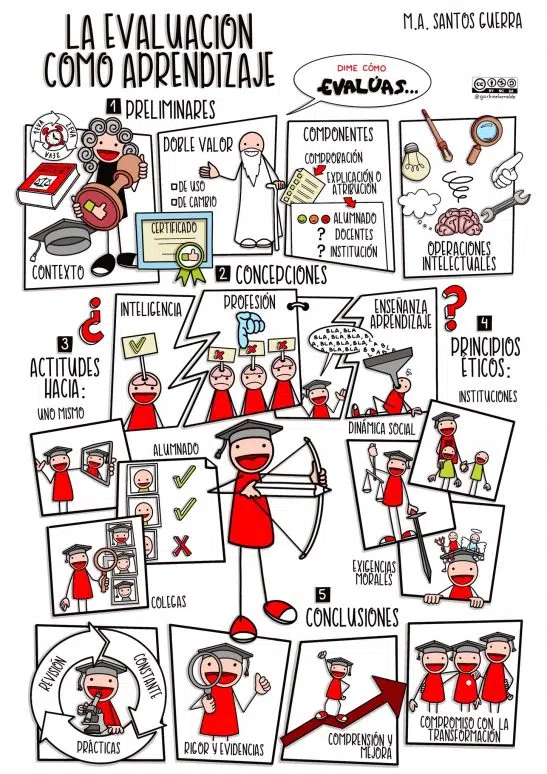 LA EVALUACIÓN
COMO APRENDIZAJE
M.A. SANTOS GUERRA
DIME CÓMO
EVALÚAS...
1 PRELIMINARES
CONTEXTO
DOBLE VALOR
DE USO
DE CAMBIO
CERTIFICADO
COMPONENTES
COMPROBACIÓN
EXPLICACIÓN O
ATRIBUCIÓN
ALUMNADO
? DOCENTES
? INSTITUCIÓN
OPERACIONES
INTELECTUALES
2 CONCEPCIONES
INTELIGENCIA
PROFESIÓN
ENSEÑANZA
APRENDIZAJE
BLA, BLA,
¿
?
3
ACTITUDES
HACIA:
UNO MISMO
ALUMNADO
COLEGAS
4
PRINCIPIOS
ÉTICOS:
INSTITUCIONES
DINÁMICA SOCIAL
EXIGENCIAS
MORALES
5
CONCLUSIONES
REVISIÓN
CONSTANTE
PRÁCTICAS
RIGOR Y EVIDENCIAS
COMPRENSIÓN Y
MEJORA
COMPROMISO CON LA
TRANSFORMACIÓN